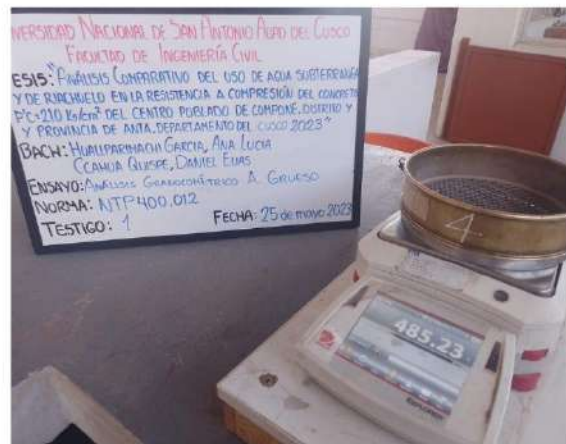 VERSIDAD NACIONAL DE SAN ANTONIO ABAD DEL CUSCO
FACULTAD DE INGENIERÍA CIVIL
ESIS: "ANÁLISIS COMPARATIVO DEL USO DE AGUA SUBTERRANEA
Y DE RIACHUELO EN LA RESISTENCIA A COMPRESIÓN DEL CONCRETO
F'C=210 KG/cm² DEL CENTRO POBLADO DE COMPONE, DISTRITO Y
Y PROVINCIA DE ANTA, DEPARTAMENTO DEL CUSCO 2023"
BACH: HUALLPARIMACHI GARCIA, ANA LUCIA
CCAHUA QUISPE, DANIEL ELIAS
ENSAYO: ANÁLISIS GRANULOMÉTRICO A. GRUESO
NORMA: NTP 400.012
TESTIGO: 1 FECHA: 25 de mayo 2023
4
485.23